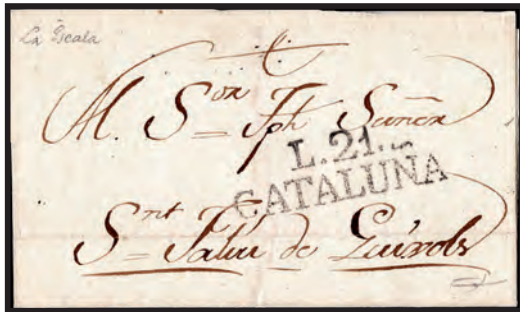 La Escala
Al. Sor Jph Suñer
L.21.
CATALUÑA
Snt Faliu de Guixols